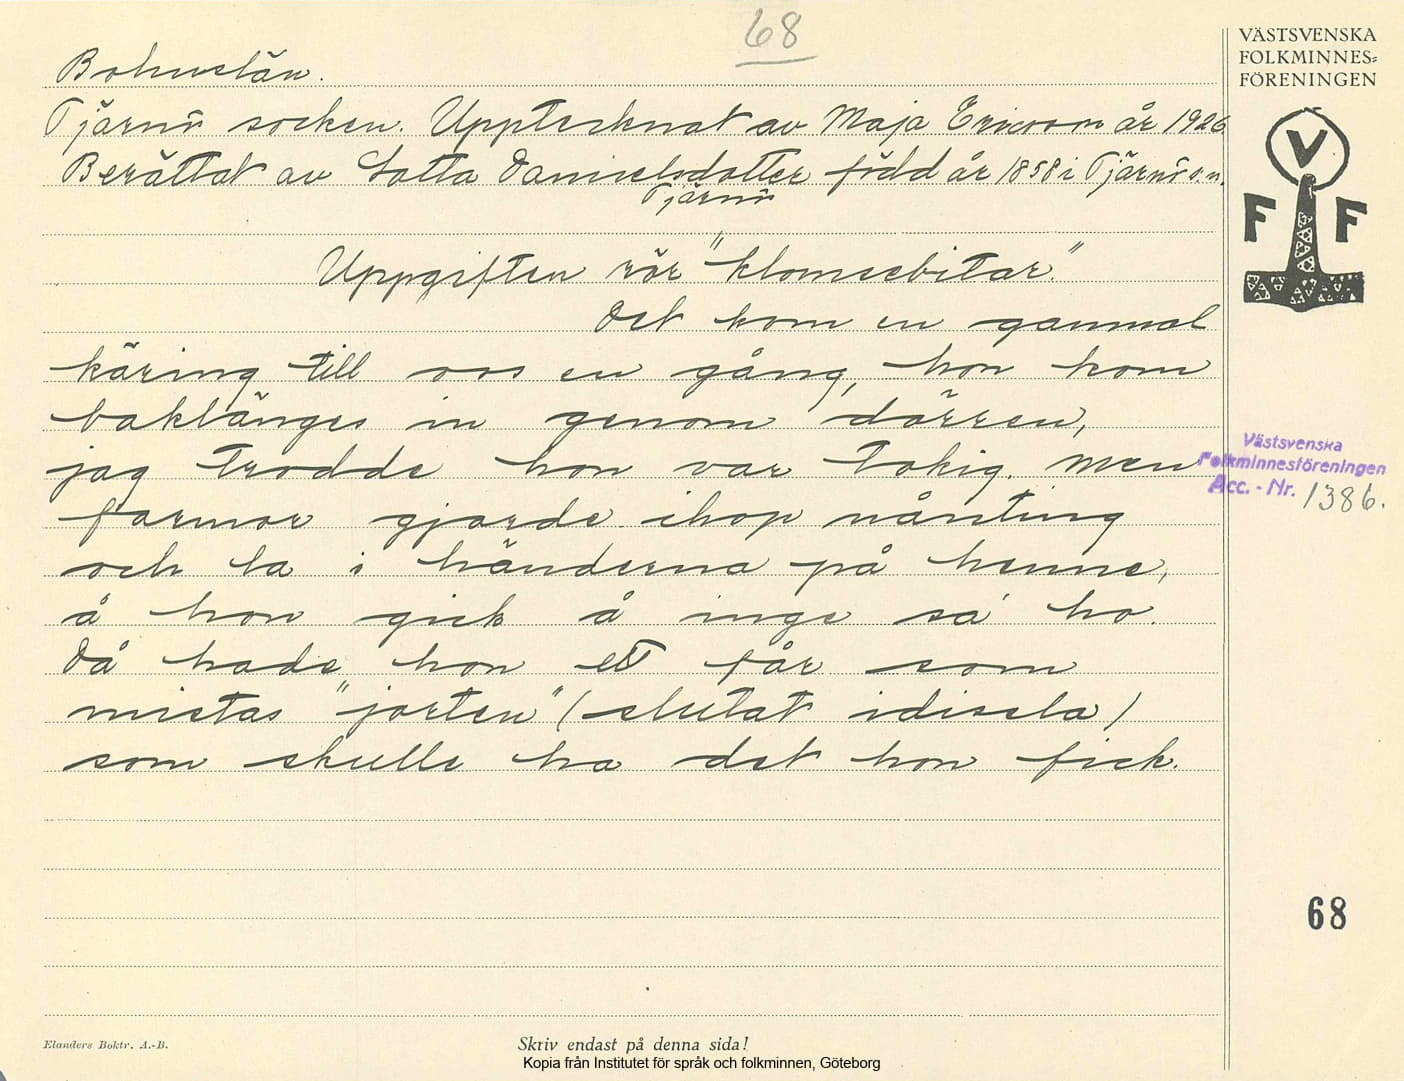 68
VÄSTSVENSKA
FOLKMINNES=
FÖRENINGEN
Bohuslän.
Tjärnö socken. Upptecknat av Maja Ericson år 1926
Berättat av Lotta Danielsdotter född år 1858 i Tjärnö s.n.
Tjärnö
V
F F
Uppgiften rör "klomsebitar."
Det kom en gammal
käring till oss en gång, hon kom
baklänges in genom dörren,
jag trodde hon var tokig. Men
farmor gjorde ihop nånting
och la i händerna på henne,
å hon gick å inge sa ho.
Då hade hon ett får som
mistas "jorten" (slutat idissla)
som skulle ha det hon fick.
Västsvenska
Folkminnesföreningen
Acc. - Nr. 1386.
68
Elanders Boktr. A.-B.
Skriv endast på denna sida!
Kopia från Institutet för språk och folkminnen, Göteborg